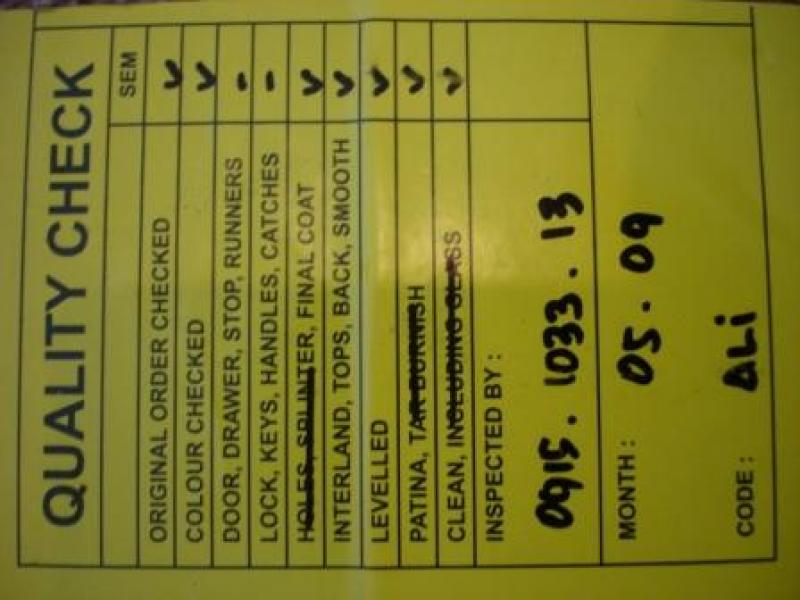 QUALITY CHECK
SEM
ORIGINAL ORDER CHECKED ✓
COLOUR CHECKED ✓
DOOR, DRAWER, STOP, RUNNERS -
LOCK, KEYS, HANDLES, CATCHES -
HOLES, SPLINTER, FINAL COAT ✓
INTERLAND, TOPS, BACK, SMOOTH ✓
LEVELLED ✓
PATINA, TAR BURNISH ✓
CLEAN, INCLUDING GLASS ✓
INSPECTED BY :
0915. 1033. 13
MONTH : 05. 09
CODE : ALi